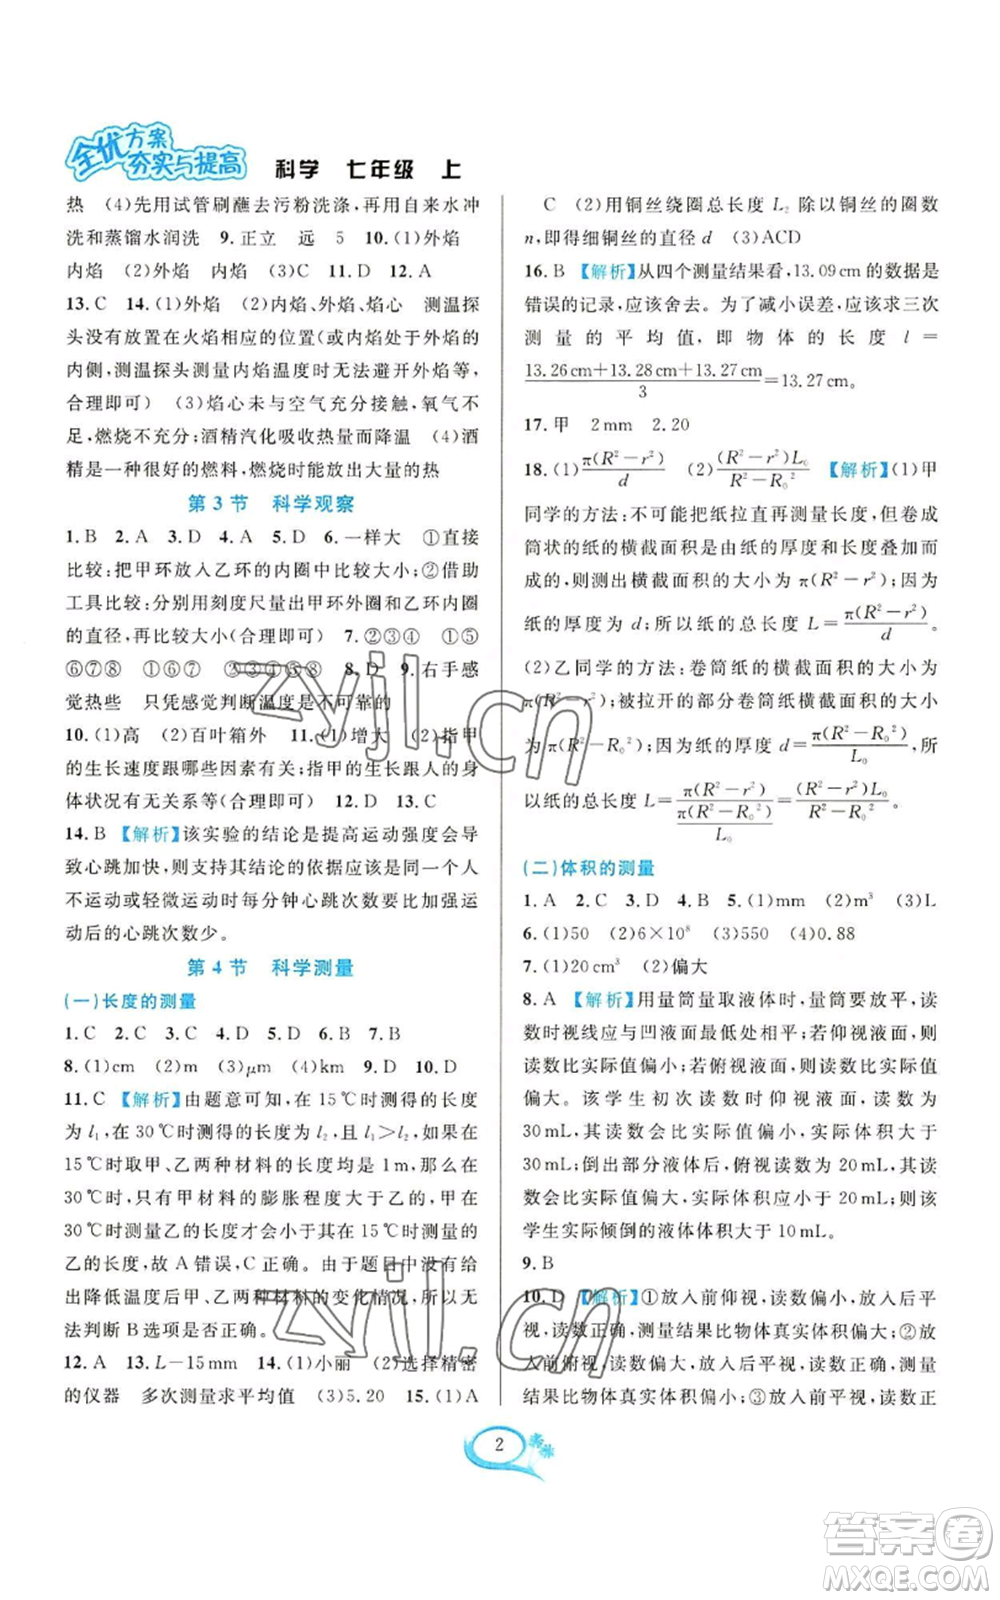 全优方案
夯实与提高
科学 七年级 上
热 (4)先用试管刷蘸去污粉洗涤,再用自来水冲
洗和蒸馏水润洗 9.正立 远 5 10.(1)外焰
内焰 (2)外焰 内焰 (3)C 11.D 12.A
13.C 14.(1)外焰 (2)内焰、外焰、焰心 测温探
头没有放置在火焰相应的位置(或内焰处于外焰的
内侧,测温探头测量内焰温度时无法避开外焰等,
合理即可) (3)焰心未与空气充分接触,氧气不
足,燃烧不充分;酒精汽化吸收热量而降温 (4)酒
精是一种很好的燃料,燃烧时能放出大量的热
第3节 科学观察
1.B 2.A 3.D 4.A 5.D 6.一样大 ①直接
比较:把甲环放入乙环的内圈中比较大小;②借助
工具比较:分别用刻度尺量出甲环外圈和乙环内圈
的直径,再比较大小(合理即可) 7.②③④
⑥⑦⑧ ①⑥⑦⑧ ①⑤ 8.D 9.右手感
觉热些 只凭感觉判断温度是不可靠的
10.(1)高 (2)百叶箱外 11.(1)增大 (2)指甲
的生长速度跟哪些因素有关;指甲的生长跟人的身
体状况有无关系等(合理即可) 12.D 13.C
14.B 【解析】该实验的结论是提高运动强度会导
致心跳加快,则支持其结论的依据应该是同一个人
不运动或轻微运动时每分钟心跳次数要比加强运
动后的心跳次数少。
第4节 科学测量
(一)长度的测量
1.C 2.C 3.C 4.C 5.D 6.B 7.B
8.(1)cm (2)m (3)μm (4)km 9.D 10.D
11.C 【解析】由题意可知,在15℃时测得的长度
为l₁,在30℃时测得的长度为l₂,且l₁>l₂。如果在
15℃时取甲、乙两种材料的长度均是1m,则在30℃
时,只有甲材料的膨胀程度大于乙的,甲在
30℃时测量乙的长度才会小于其在15℃时测量
乙的长度,故A错误,C正确。由于题目中没有给
出降低温度后甲、乙两种材料的变化情况,所以无
法判断B选项是否正确。
12.A 13.L-15mm 14.(1)小丽 (2)选择精密
的仪器 多次测量求平均值 (3)5.20 15.(1)A
C (2)用铜丝绕圈总长度L₂除以铜丝的圈数
n,即得细铜丝的直径d (3)ACD
16.B 【解析】从四个测量结果看,13.09cm的数据是
错误的记录,应该舍去。为了减小误差,应该求三次
测量的平均值,即物体的长度l=
(13.26cm+13.28cm+13.27cm)/3=13.27cm。
17.甲 2mm 2.20
18.(1)π(R²-r²)/d (2)(R²-r²)L₀/(R²-R₀²) 【解析】(1)甲
同学的方法:不可能把纸拉直再测量长度,但卷成
筒状的纸的横截面积是以纸的厚度和长度叠加而
成的,则测出横截面积的大小为π(R²-r²),为
纸的厚度为d;所以纸的总长度L=π(R²-r²)/d。
(2)乙同学的方法:卷筒纸的横截面积的大小为
π(R²-r²);被拉开的部分卷筒纸横截面积的大小
为π(R²-R₀²);因为纸的厚度d=π(R²-R₀²)/L₀,所
以纸的总长度L=π(R²-r²)/(π(R²-R₀²)/L₀)=(R²-r²)L₀/(R²-R₀²)。
(二)体积的测量
1.A 2.B 3.D 4.B 5.(1)mm (2)m³ (3)L
6.(1)50 (2)6×10⁸ (3)550 (4)0.88
7.(1)20cm³ (2)偏大
8.A 【解析】用量筒量取液体时,量筒要放平,读
数时视线应与凹液面最低处相平;若仰视液面,则
读数比实际值偏小;若俯视液面,读数比实际值
偏大。该学生初次读数时仰视液面,读数为
30mL,其读数会比实际值偏小,实际体积应大于
30mL;倒出部分液体后,俯视读数为20mL,其读
数会比实际值偏大,实际体积应小于20mL,则该
学生实际倾倒的液体体积大于10mL。
9.B
10.D 【解析】①放入前仰视,读数偏小,放入后平
视,读数正确,测量结果比物体真实体积偏大;②放
入前俯视,读数偏大,放入后平视,读数正确,测量
结果比物体真实体积偏小;③放入前平视,读数正
2
zyjl.cn
zyjl.cn
答案卷
MXQE.COM